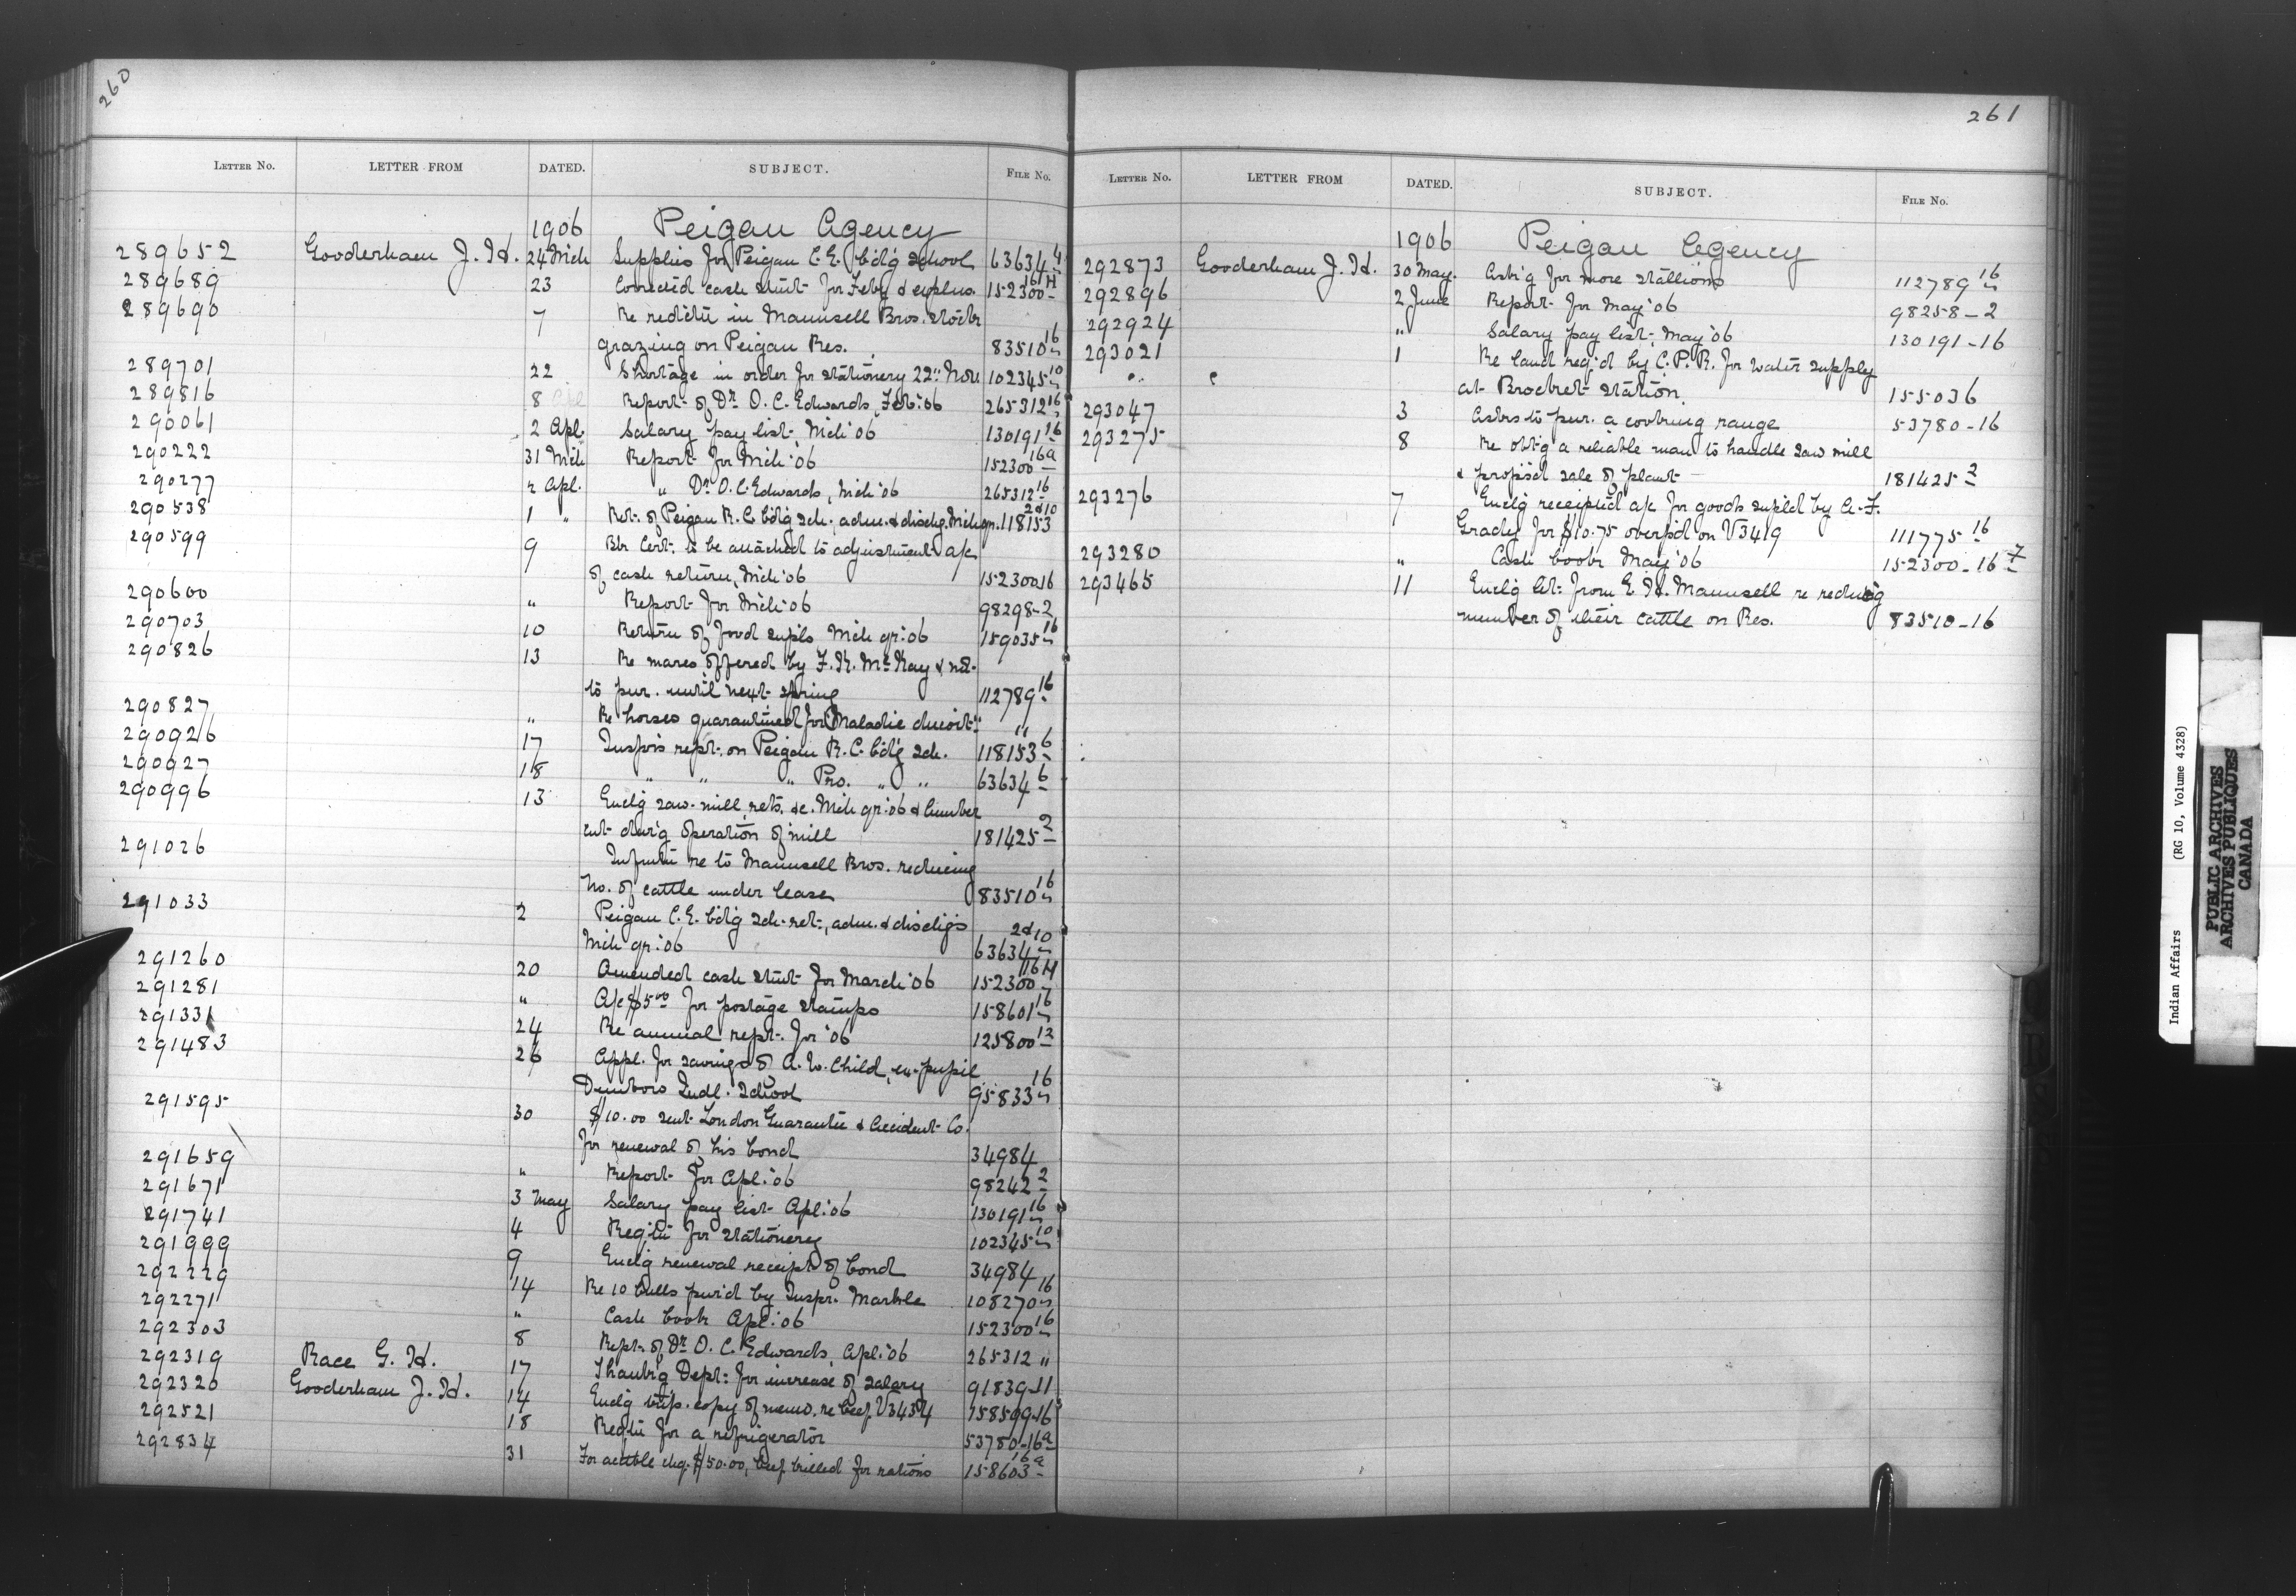 260
LETTER NO. LETTER FROM DATED. SUBJECT. FILE NO.
1906 Peigan Agency
289652 Gooderham J. H. 24 Mch Supplies for Peigan C.E. bdg school 63634 4
289689 23 Corrected cash stmt for Feby & explns. 152300 16 H
289690 7 Re reductn in Maunsell Bros. stock
grazing on Peigan Res. 83510 16
289701 22 Shortage in order for stationery 22" Nov. 102345 10
289816 8 Report of Dr. O. C. Edwards, Feb: 06 265312 16
290061 2 Apl. Salary pay list, Mch '06 130191 16
290222 31 Mch Report for Mch '06 152300 16a
290277 2 Apl. " Dr. O. C. Edwards, Mch '06 265312 16
290538 1 " Ret. of Peigan R. C. bdg sch. adm. & dischg. Mch qr. 118153 2d10
290599 9 Bk Cert. to be attached to adjustment a/c
of cash return, Mch '06 152300 16
290600 " Report for Mch '06 98298-2
290703 10 Return of food supls Mch qr: 06 159035 16
290826 13 Re mares offered by F. R. McKay & not
to pur. until next spring 112789 16
290827 " Re horses quarantined for "Maladie du coit" "
290926 17 Inspr's rept. on Peigan R. C. bdg sch. 118153 6
290927 18 " " " Pro. " " 63634 6
290996 13 Enclg saw-mill rets. &c. Mch qr: 06 & lumber
cut durg operation of mill 181425 2
291026 Infmtn re to Maunsell Bros. reducing
No. of cattle under lease 83510 16
291033 2 Peigan C. E. bdg sch. ret., adm. & dischgs
Mch qr: 06 63634 2d10
291260 20 Amended cash stmt for March '06 152300 16 H
291281 " A/c $5.00 for postage stamps 158601 16
291331 24 Re annual rept. for '06 125800 12
291483 26 Appl. for savings of A. W. Child, ex-pupil
Dunbow Indl. School 95833 16
291595 30 $10.00 sent London Guarantee & Accident Co.
for renewal of his bond 34984
291659 " Report for Apl: 06 98242 2
291671 3 May Salary pay list Apl: 06 130191 16
291741 4 Reqtn for stationery 102345 10
291999 9 Enclg renewal receipt of bond 34984
292229 14 Re 10 bulls pur'd by Inspr. Markle 108270 16
292271 " Cash book Apl: 06 152300 16
292303 8 Rept. of Dr. O. C. Edwards, Apl: 06 265312 "
292319 Race G. H. 17 Thank'g Dept: for increase of salary 91839-11
292320 Gooderham J. H. 14 Enclg trip. copy of memo. re beef V3434 158509-16
292521 18 Reqtn for a refrigerator 53780-16a
292834 31 For acctble chq. $50.00, beef killed for rations 158603 16a
261
LETTER NO. LETTER FROM DATED. SUBJECT. FILE NO.
1906 Peigan Agency
292873 Gooderham J. H. 30 May. Ask'g for more stallions 112789 16
292896 2 June Report for May '06 98258-2
292924 " Salary pay list, May '06 130191-16
293021 1 Re land req'd by C. P. R. for water supply
at Brocket station. 155036
293047 3 Asks to pur. a cooking range 53780-16
293275 8 Re obt'g a reliable man to handle saw mill
& propos'd sale of plant 181425 2
293276 7 Enclg receipted a/c for goods supld by A. F.
Grady for $10.75 overp'd on V3419 111775 16
293280 " Cash book May '06 152300-16 7
293465 11 Enclg let: from E. H. Maunsell re reducg
number of their cattle on Res. 83510-16
Indian Affairs (RG 10, Volume 4328)
PUBLIC ARCHIVES
ARCHIVES PUBLIQUES
CANADA